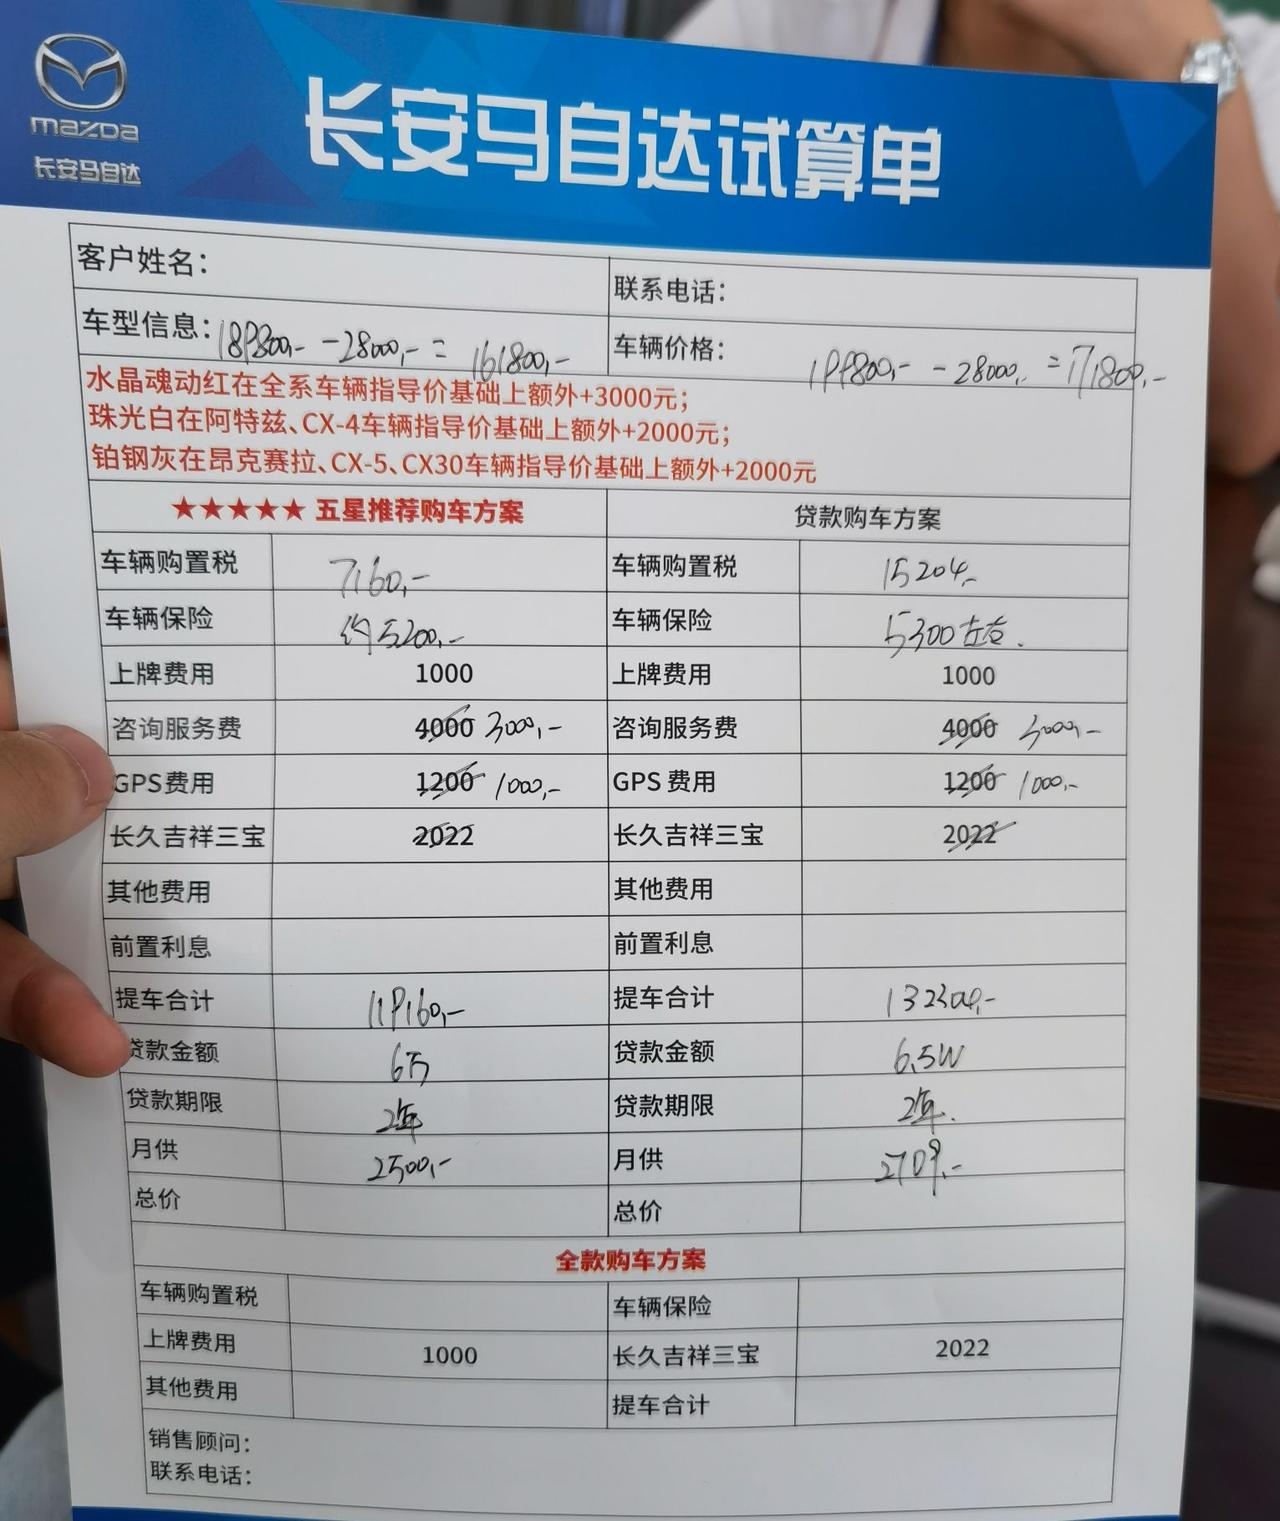 mazda
长安马自达
长安马自达试算单
客户姓名： 联系电话：
车型信息：189800,- -28000,- = 161800,- 车辆价格：199800,- -28000,- =171800,-
水晶魂动红在全系车辆指导价基础上额外+3000元；
珠光白在阿特兹、CX-4车辆指导价基础上额外+2000元；
铂钢灰在昂克赛拉、CX-5、CX30车辆指导价基础上额外+2000元
★★★★★ 五星推荐购车方案 贷款购车方案
车辆购置税 7160,- 车辆购置税 15204,-
车辆保险 约5200,- 车辆保险 5300左右.
上牌费用 1000 上牌费用 1000
咨询服务费 4000 3000,- 咨询服务费 4000 3000,-
GPS费用 1200 1000,- GPS费用 1200 1000,-
长久吉祥三宝 2022 长久吉祥三宝 2022
其他费用 其他费用
前置利息 前置利息
提车合计 119160,- 提车合计 132304,-
贷款金额 6万 贷款金额 6.5W
贷款期限 2年 贷款期限 2年.
月供 2500,- 月供 2709,-
总价 总价
全款购车方案
车辆购置税 车辆保险
上牌费用 1000 长久吉祥三宝 2022
其他费用 提车合计
销售顾问：
联系电话：